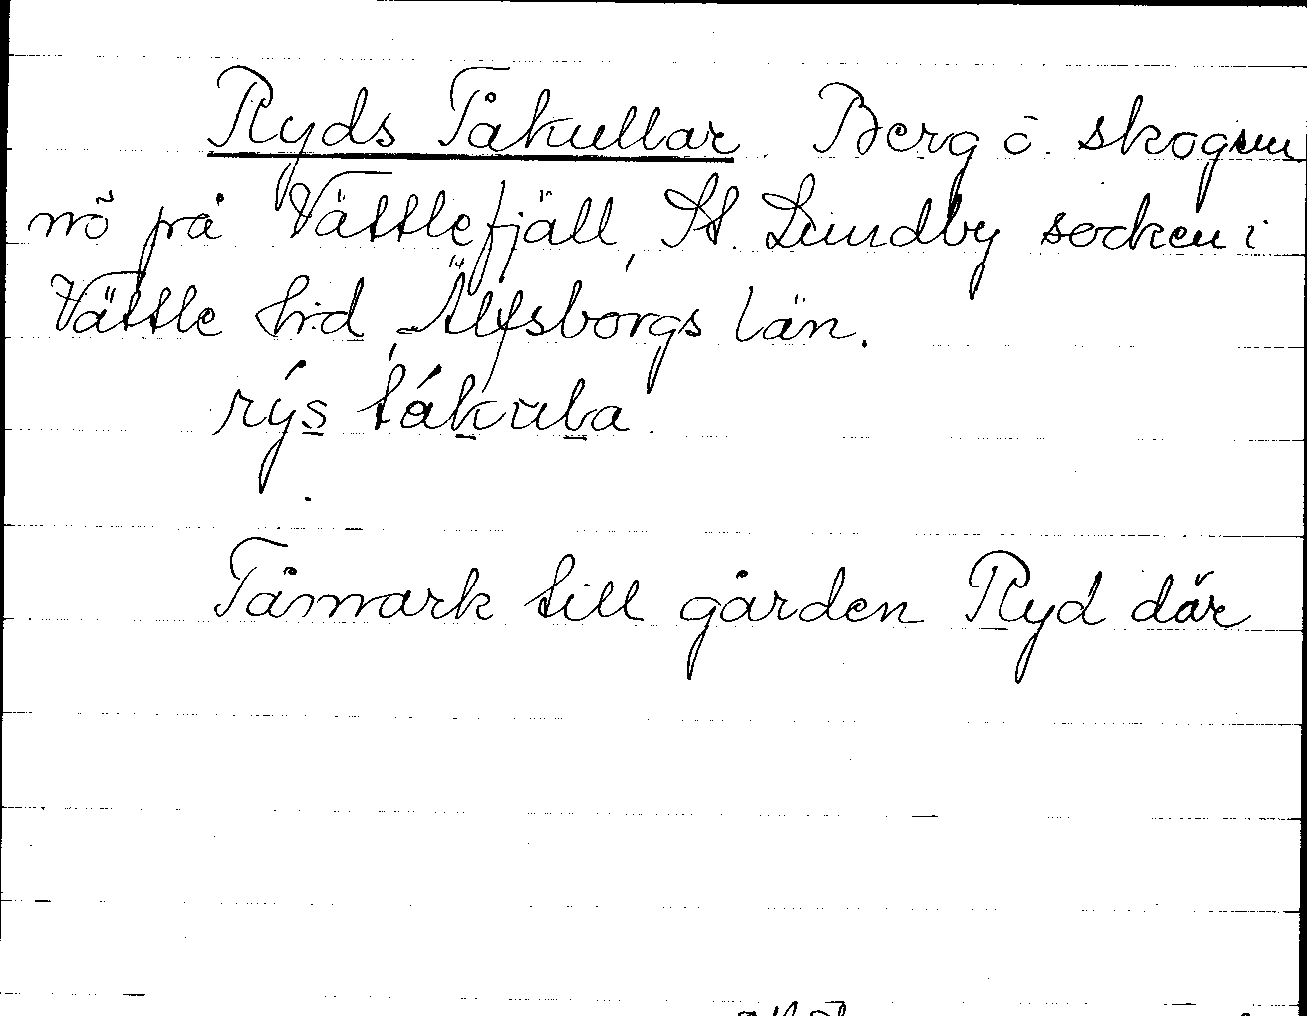 Ryds Tåkullar. Berg o. skogen
nö på Vättlefjäll, St. Lundby socken i
Vättle hd, Älfsborgs län.
rýs tákula.
Tåmark till gården Ryd där